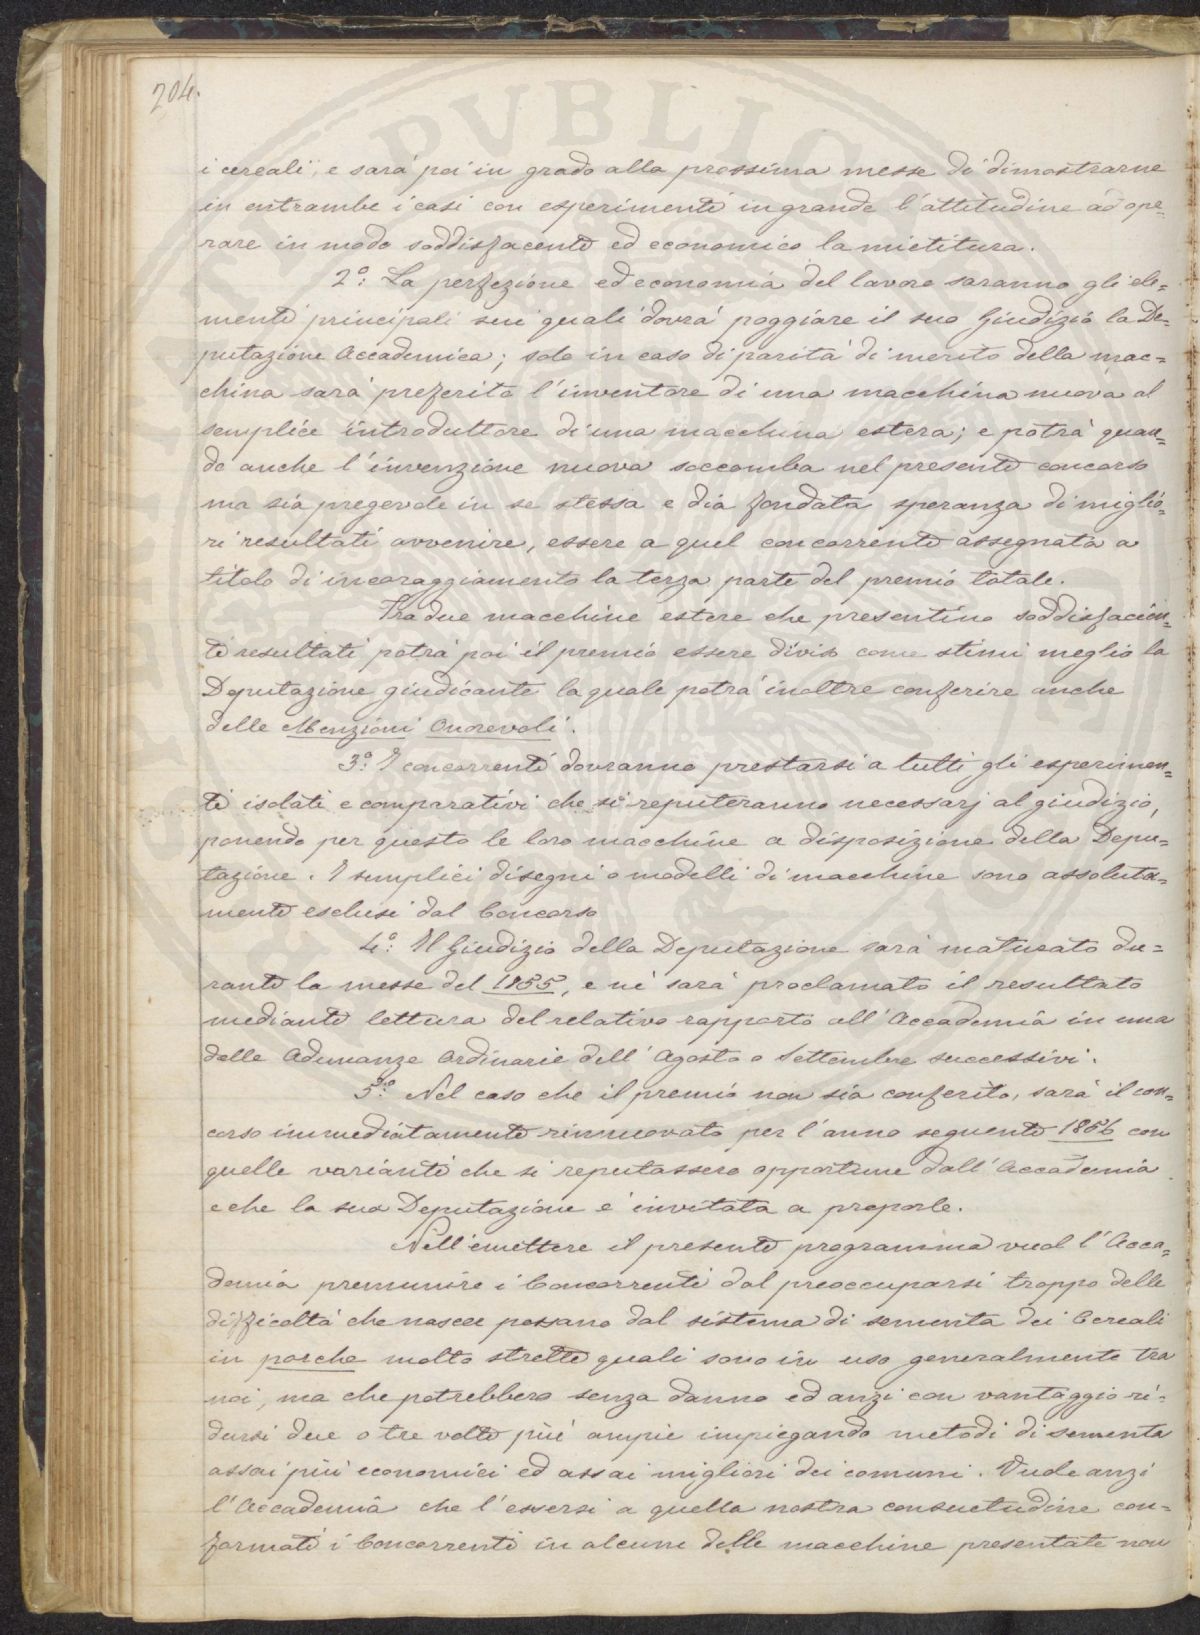 204.
i cereali, e sarà poi in grado alla prossima messe di dimostrarne
in entrambe i casi con esperimenti in grande l'attitudine ad ope=
rare in modo soddisfacente ed economico la mietitura.
2.° La perfezione ed economia del lavoro saranno gli ele=
menti principali sui quali dovrà poggiare il suo Giudizio la De=
putazione Accademica; solo in caso di parità di merito della mac=
china sarà preferito l'inventore di una macchina nuova al
semplice introduttore di una macchina estera; e potrà quan=
do anche l'invenzione nuova soccomba nel presente concorso
ma sia pregevole in se stessa e dia fondata speranza di miglio=
ri resultati avvenire, essere a quel concorrente assegnata a
titolo di incoraggiamento la terza parte del premio totale.
Tra due macchine estere che presentino soddisfacien=
ti resultati potrà poi il premio essere diviso come stimi meglio la
Deputazione giudicante la quale potrà inoltre conferire anche
delle Menzioni Onorevoli.
3.° I concorrenti dovranno prestarsi a tutti gli esperimen=
ti isolati e comparativi che si reputeranno necessarj al giudizio,
ponendo per questo le loro macchine a disposizione della Depu=
tazione. I semplici disegni o modelli di macchine sono assoluta=
mente esclusi dal Concorso
4.° Il Giudizio della Deputazione sarà maturato du=
rante la messe del 1855, e ne sarà proclamato il resultato
mediante lettura del relativo rapporto all'Accademia in una
delle Adunanze Ordinarie dell'Agosto o Settembre successivi.
5.° Nel caso che il premio non sia conferito, sarà il con=
corso immediatamente rinnuovato per l'anno seguente 1856 con
quelle varianti che si reputassero opportune dall'Accademia
e che la sua Deputazione è invitata a proporle.
Nell'emettere il presente programma vuol l'Acca=
demia premunire i Concorrenti dal preoccuparsi troppo delle
difficoltà che nascer possano dal sistema di sementa dei Cereali
in porche molto strette quali sono in uso generalmente tra
noi, ma che potrebbero senza danno ed anzi con vantaggio ri=
dursi due o tre volte più ampie impiegando metodi di sementa
assai più economici ed assai migliori dei comuni. Vuole anzi
l'Accademia che l'essersi a quella nostra consuetudine con=
formati i Concorrenti in alcune delle macchine presentate non
PVBLIC